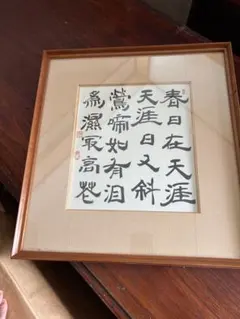 春日在天涯
天涯日又斜
鶯啼如有泪
為濕最高花